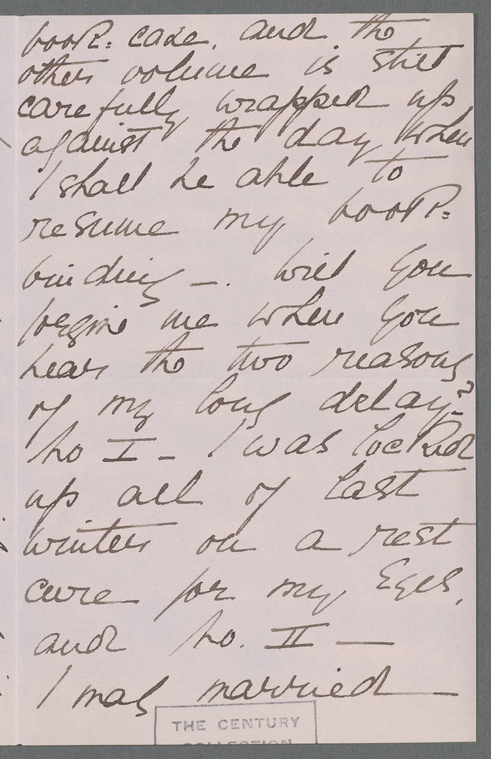 book-case, and the
other volume is still
carefully wrapped up
against the day when
I shall be able to
resume my book-
binding —. Will you
forgive me when you
hear the two reasons
of my long delay?
No I — I was locked
up all of last
winter on a rest
cure for my Eyes,
and No. II —
I was married —
THE CENTURY
COLLECTION